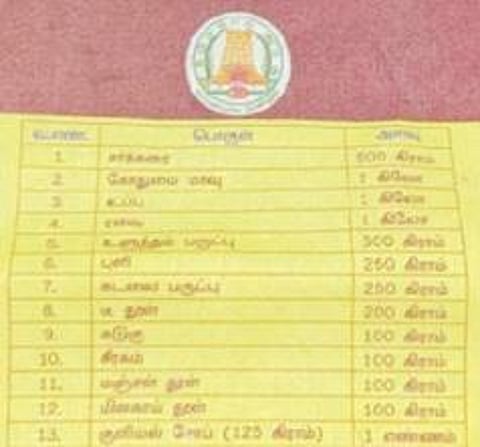 வ.எண். பொருள் அளவு
1. சர்க்கரை 500 கிராம்
2. கோதுமை மாவு 1 கிலோ
3. உப்பு 1 கிலோ
4. ரவை 1 கிலோ
5. உளுத்தம் பருப்பு 500 கிராம்
6. புளி 250 கிராம்
7. கடலை பருப்பு 250 கிராம்
8. டீ தூள் 200 கிராம்
9. கடுகு 100 கிராம்
10. சீரகம் 100 கிராம்
11. மஞ்சள் தூள் 100 கிராம்
12. மிளகாய் தூள் 100 கிராம்
13. குளியல் சோப் (125 கிராம்) 1 எண்ணம்